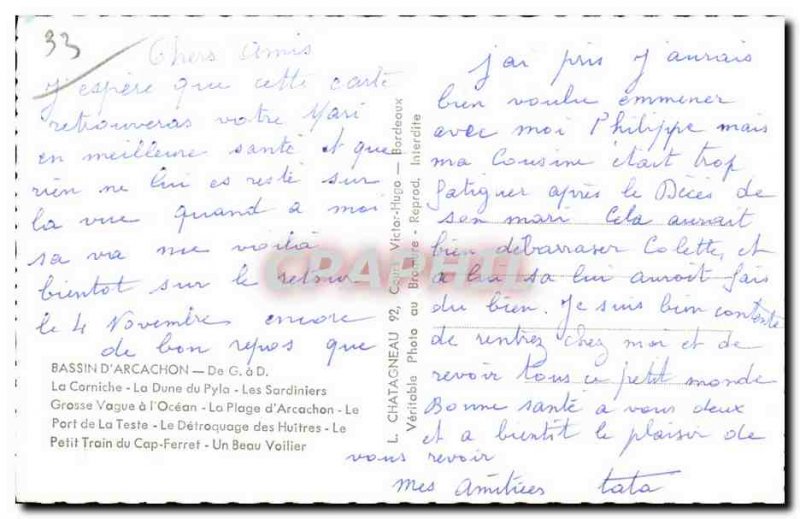 33
Chers Amis
J'espère que cette carte
retrouveras votre Mari
en meilleure santé et que
rien ne lui es resté sur
la vue quand a moi
sa va me voilà
bientot sur le retour
le 4 Novembre encore
de bon repos que
BASSIN D'ARCACHON — De G. à D.
La Corniche - La Dune du Pyla - Les Sardiniers
Grosse Vague à l'Océan - La Plage d'Arcachon - Le
Port de La Teste - Le Détroquage des Huîtres - Le
Petit Train du Cap-Ferret - Un Beau Voilier
L. CHATAGNEAU 92, Cours Victor-Hugo — Bordeaux
Véritable Photo au Bromure - Reprod. Interdite
CPAPHIL
j'ai pris j'aurais
bien voulu emmener
avec moi Philippe mais
ma Cousine était trop
fatiguer après le Décès de
son mari Cela aurait
bien débarraser Colette, et
a lui sa lui auroit fais
du bien. Je suis bien contente
de rentrez chez moi et de
revoir tous ce petit monde
Bonne santé a vous deux
et a bientôt le plaisir de
vous revoir
Mes Amitiées tata